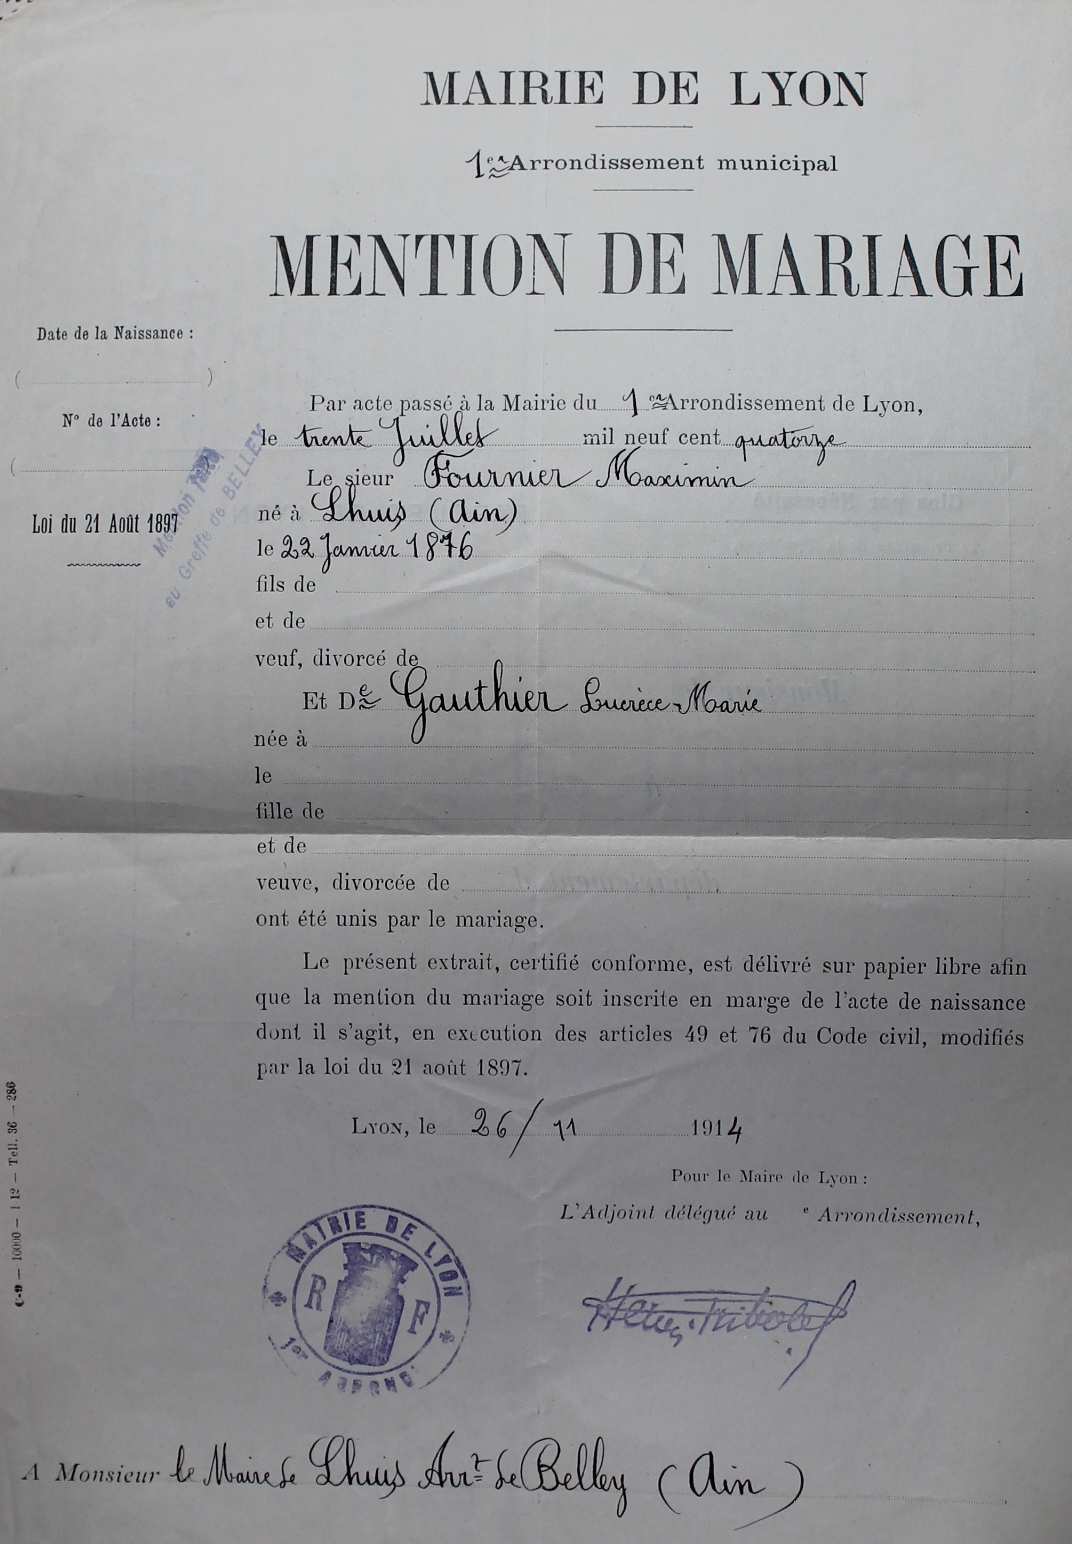 MAIRIE DE LYON
1er Arrondissement municipal
MENTION DE MARIAGE
Date de la Naissance :
( )
N° de l'Acte :
(
Loi du 21 Août 1897
Mention faite
au Greffe de BELLEY
Par acte passé à la Mairie du 1er Arrondissement de Lyon,
le trente Juillet mil neuf cent quatorze
Le sieur Fournier Maximin
né à Lhuis (Ain)
le 22 Janvier 1876
fils de
et de
veuf, divorcé de
Et De Gauthier Lucrèce-Marie
née à
le
fille de
et de
veuve, divorcée de
ont été unis par le mariage.
Le présent extrait, certifié conforme, est délivré sur papier libre afin
que la mention du mariage soit inscrite en marge de l'acte de naissance
dont il s'agit, en execution des articles 49 et 76 du Code civil, modifiés
par la loi du 21 août 1897.
LYON, le 26/11 1914
Pour le Maire de Lyon :
L'Adjoint délégué au e Arrondissement,
MAIRIE DE LYON
R F
1er ARROND
A Monsieur le Maire de Lhuis Arrt de Belley (Ain)
C-9 — 10000 — 1 12 — Tell. 36 — 286